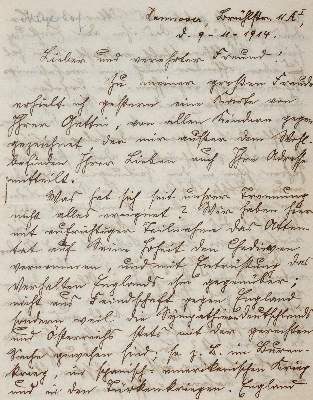 Hannover, Brühlstr. 11 A I,
d. 9-11-1914.
Lieber und verehrter Freund!
Zu meiner großen Freude
erhielt ich gestern eine Karte von
Ihrer Gattin, von allen Kindern gegen-
gezeichnet der mir außer dem Wohl-
befinden Ihrer Lieben auch Ihre Adresse
mitteilt.
Was hat sich seit unsrer Trennung
nicht alles ereignet? Wir haben hier
mit aufrichtiger Teilnahme das Atten-
tat auf Seine Hoheit den Chediven
vernommen, und mit Entrüstung das
Verhalten Englands ihm gegenüber;
nicht aus Feindschaft gegen England
sondern weil die Sympathien Deutschlands
und Österreichs stets mit der gerechten
Sache gewesen sind, so z. B. im Buren-
krieg, im spanisch-amerikanischen Krieg
und in den Türkenkriegen. England